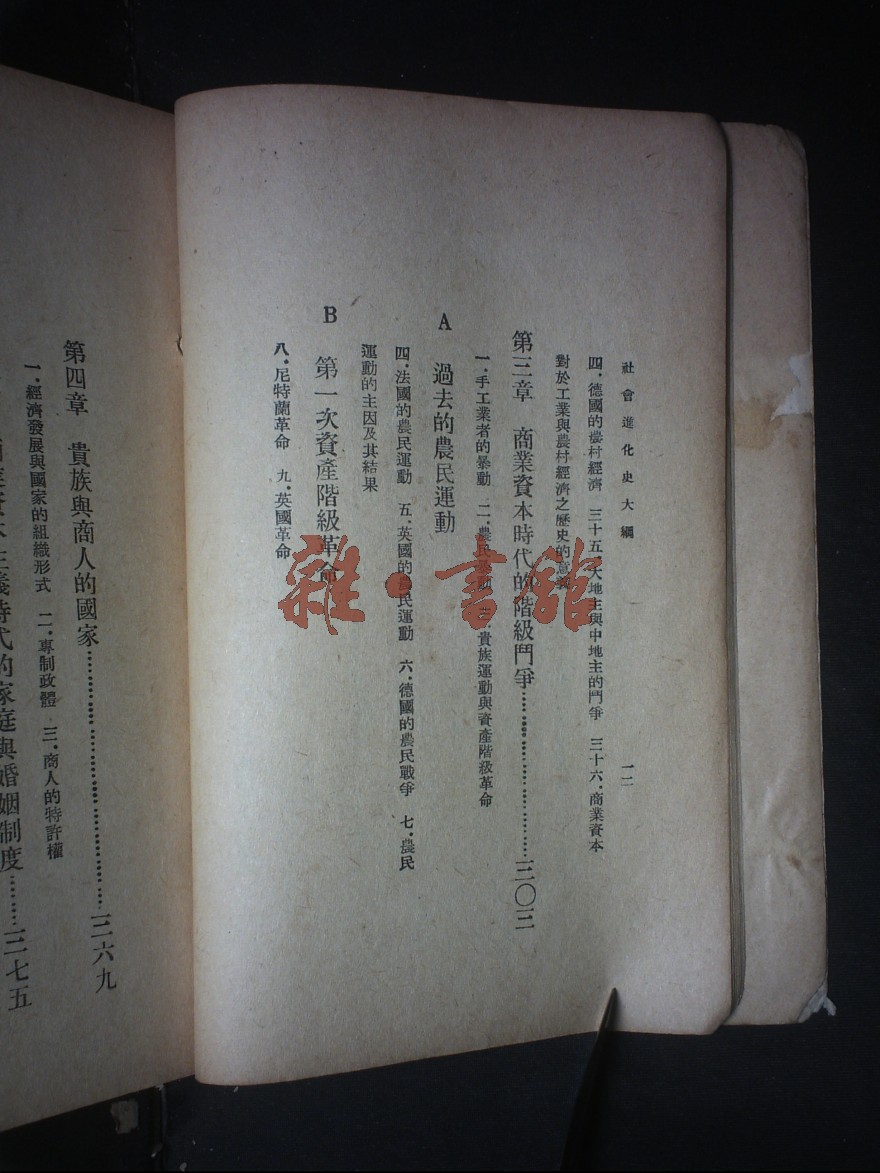 社會進化史大綱
一二
四．德國的農村經濟　三十五．大地主與中地主的鬥爭　三十六．商業資本
對於工業與農村經濟之歷史的意義
第三章　商業資本時代的階級鬥爭……三〇三
一．手工業者的暴動　二．農民暴動　三．貴族運動與資產階級革命
A　過去的農民運動
四．法國的農民運動　五．英國的農民運動　六．德國的農民戰爭　七．農民
運動的主因及其結果
B　第一次資產階級革命
八．尼特蘭革命　九．英國革命
第四章　貴族與商人的國家……三六九
一．經濟發展與國家的組織形式　二．專制政體　三．商人的特許權
資本主義時代的家庭與婚姻制度……三七五
雜·書館